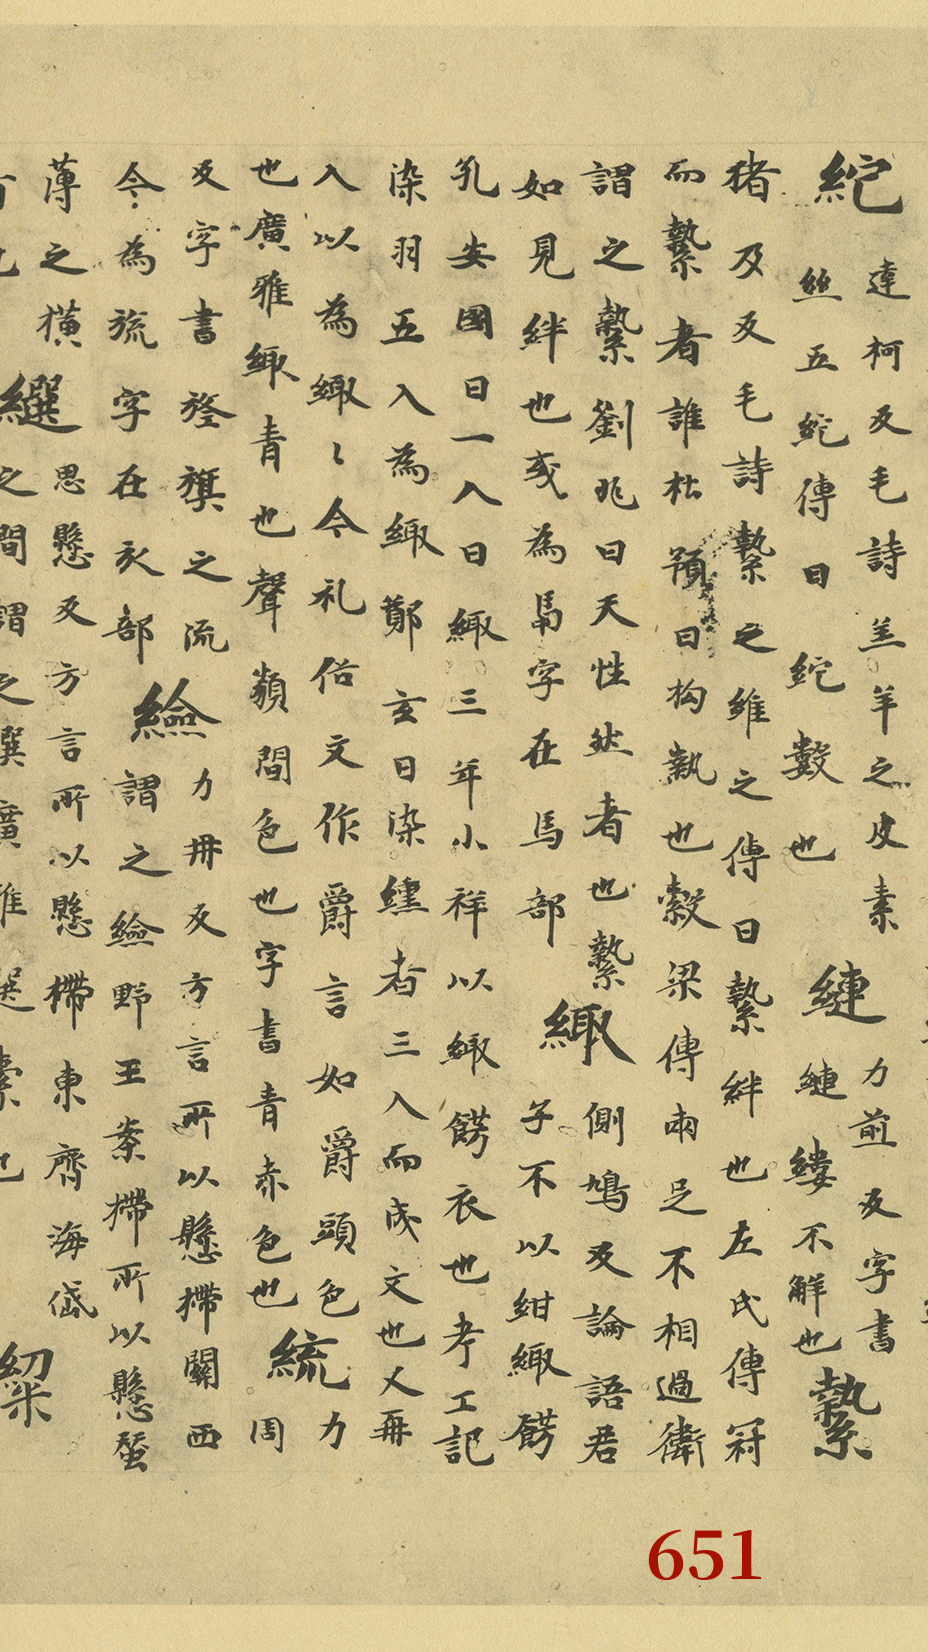 紽
達柯反毛詩羔羊之皮素
絲五紽傳曰紽數也
縺
力前反字書
縺縷不解也
縶
豬及反毛詩縶之維之傳曰縶絆也左氏傳冠
而縶者誰杜預曰拘執也穀梁傳兩足不相過衛
謂之縶劉兆曰天性然者也縶
如見絆也或為馽字在馬部
緅
側鳩反論語君
子不以紺緅餝
孔安國曰一入曰緅三年小祥以緅餝衣也考工記
染羽五入為緅鄭玄曰染纁者三入而成文也又再
入以為緅〻今礼俗文作爵言如爵頭色
也廣雅緅青也聲類間色也字書青赤色也
統
力
周
反字書旍旗之流
今為旒字在㫃部
䌞
力冉反方言所以懸㯂關西
謂之䌞野王案㯂所以懸蚕
薄之橫
繏
思懸反方言所以懸㯂東齊海岱
之間謂之繏廣雅繏索也
651